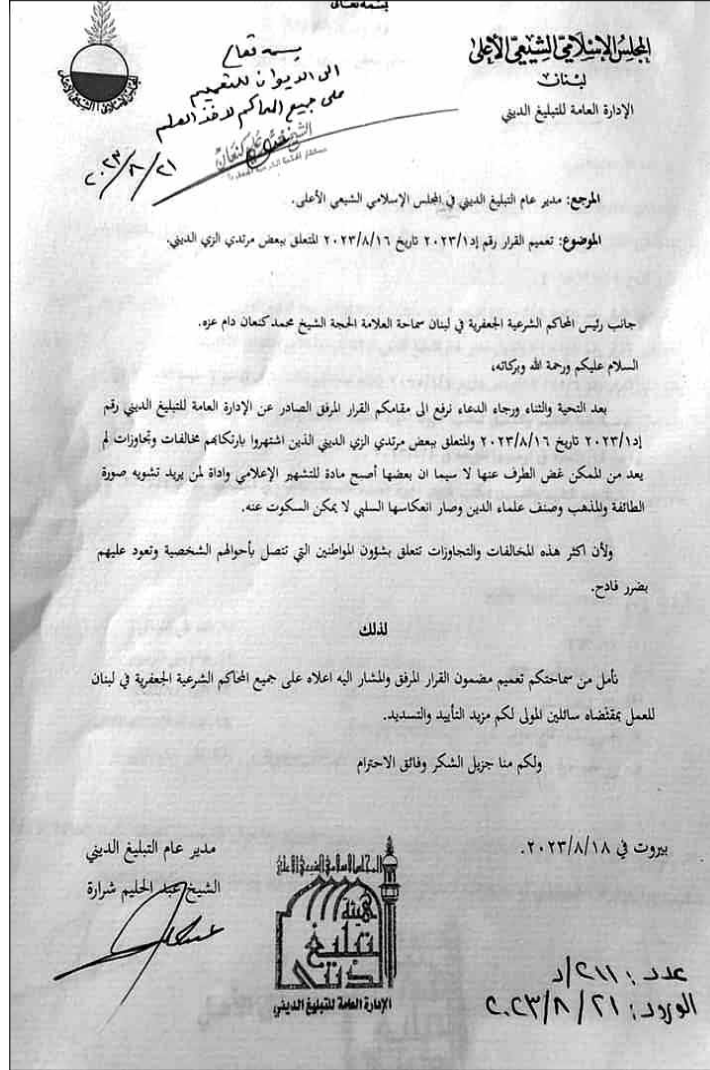 بسمه تعالى
المجلس الإسلامي الشيعي الأعلى
لبنان
الإدارة العامة للتبليغ الديني
بسمه تعالى
الى الديوان للتعميم
على جميع المحاكم لاخذ العلم
الشيخ محمد كنعان
٢٠٢٣/٨/٢١
المرجع: مدير عام التبليغ الديني في المجلس الإسلامي الشيعي الأعلى.
الموضوع: تعميم القرار رقم إد/٢٠٢٣/١ تاريخ ٢٠٢٣/٨/١٦ المتعلق ببعض مرتدي الزي الديني.
جانب رئيس المحاكم الشرعية الجعفرية في لبنان سماحة العلامة الحجة الشيخ محمد كنعان دام عزه.
السلام عليكم ورحمة الله وبركاته،
بعد التحية والثناء ورجاء الدعاء نرفع الى مقامكم القرار المرفق الصادر عن الإدارة العامة للتبليغ الديني رقم
إد/٢٠٢٣/١ تاريخ ٢٠٢٣/٨/١٦ والمتعلق ببعض مرتدي الزي الديني الذين اشتهروا بارتكابهم مخالفات وتجاوزات لم
يعد من الممكن غض الطرف عنها لا سيما ان بعضها أصبح مادة للتشهير الإعلامي واداة لمن يريد تشويه صورة
الطائفة والمذهب وصنف علماء الدين وصار انعكاسها السلبي لا يمكن السكوت عنه.
ولأن اكثر هذه المخالفات والتجاوزات تتعلق بشؤون المواطنين التي تتصل بأحوالهم الشخصية وتعود عليهم
بضرر فادح.
لذلك
نأمل من سماحتكم تعميم مضمون القرار المرفق والمشار اليه اعلاه على جميع المحاكم الشرعية الجعفرية في لبنان
للعمل بمقتضاه سائلين المولى لكم مزيد التأييد والتسديد.
ولكم منا جزيل الشكر وفائق الاحترام
بيروت في ٢٠٢٣/٨/١٨.
مدير عام التبليغ الديني
الشيخ عبد الحليم شرارة
المجلس الاسلامي الشيعي الاعلى
هيئة
التبليغ
الديني
الإدارة العامة للتبليغ الديني
عدد: ٢١١/د
الورود: ٢٠٢٣/٨/٢١